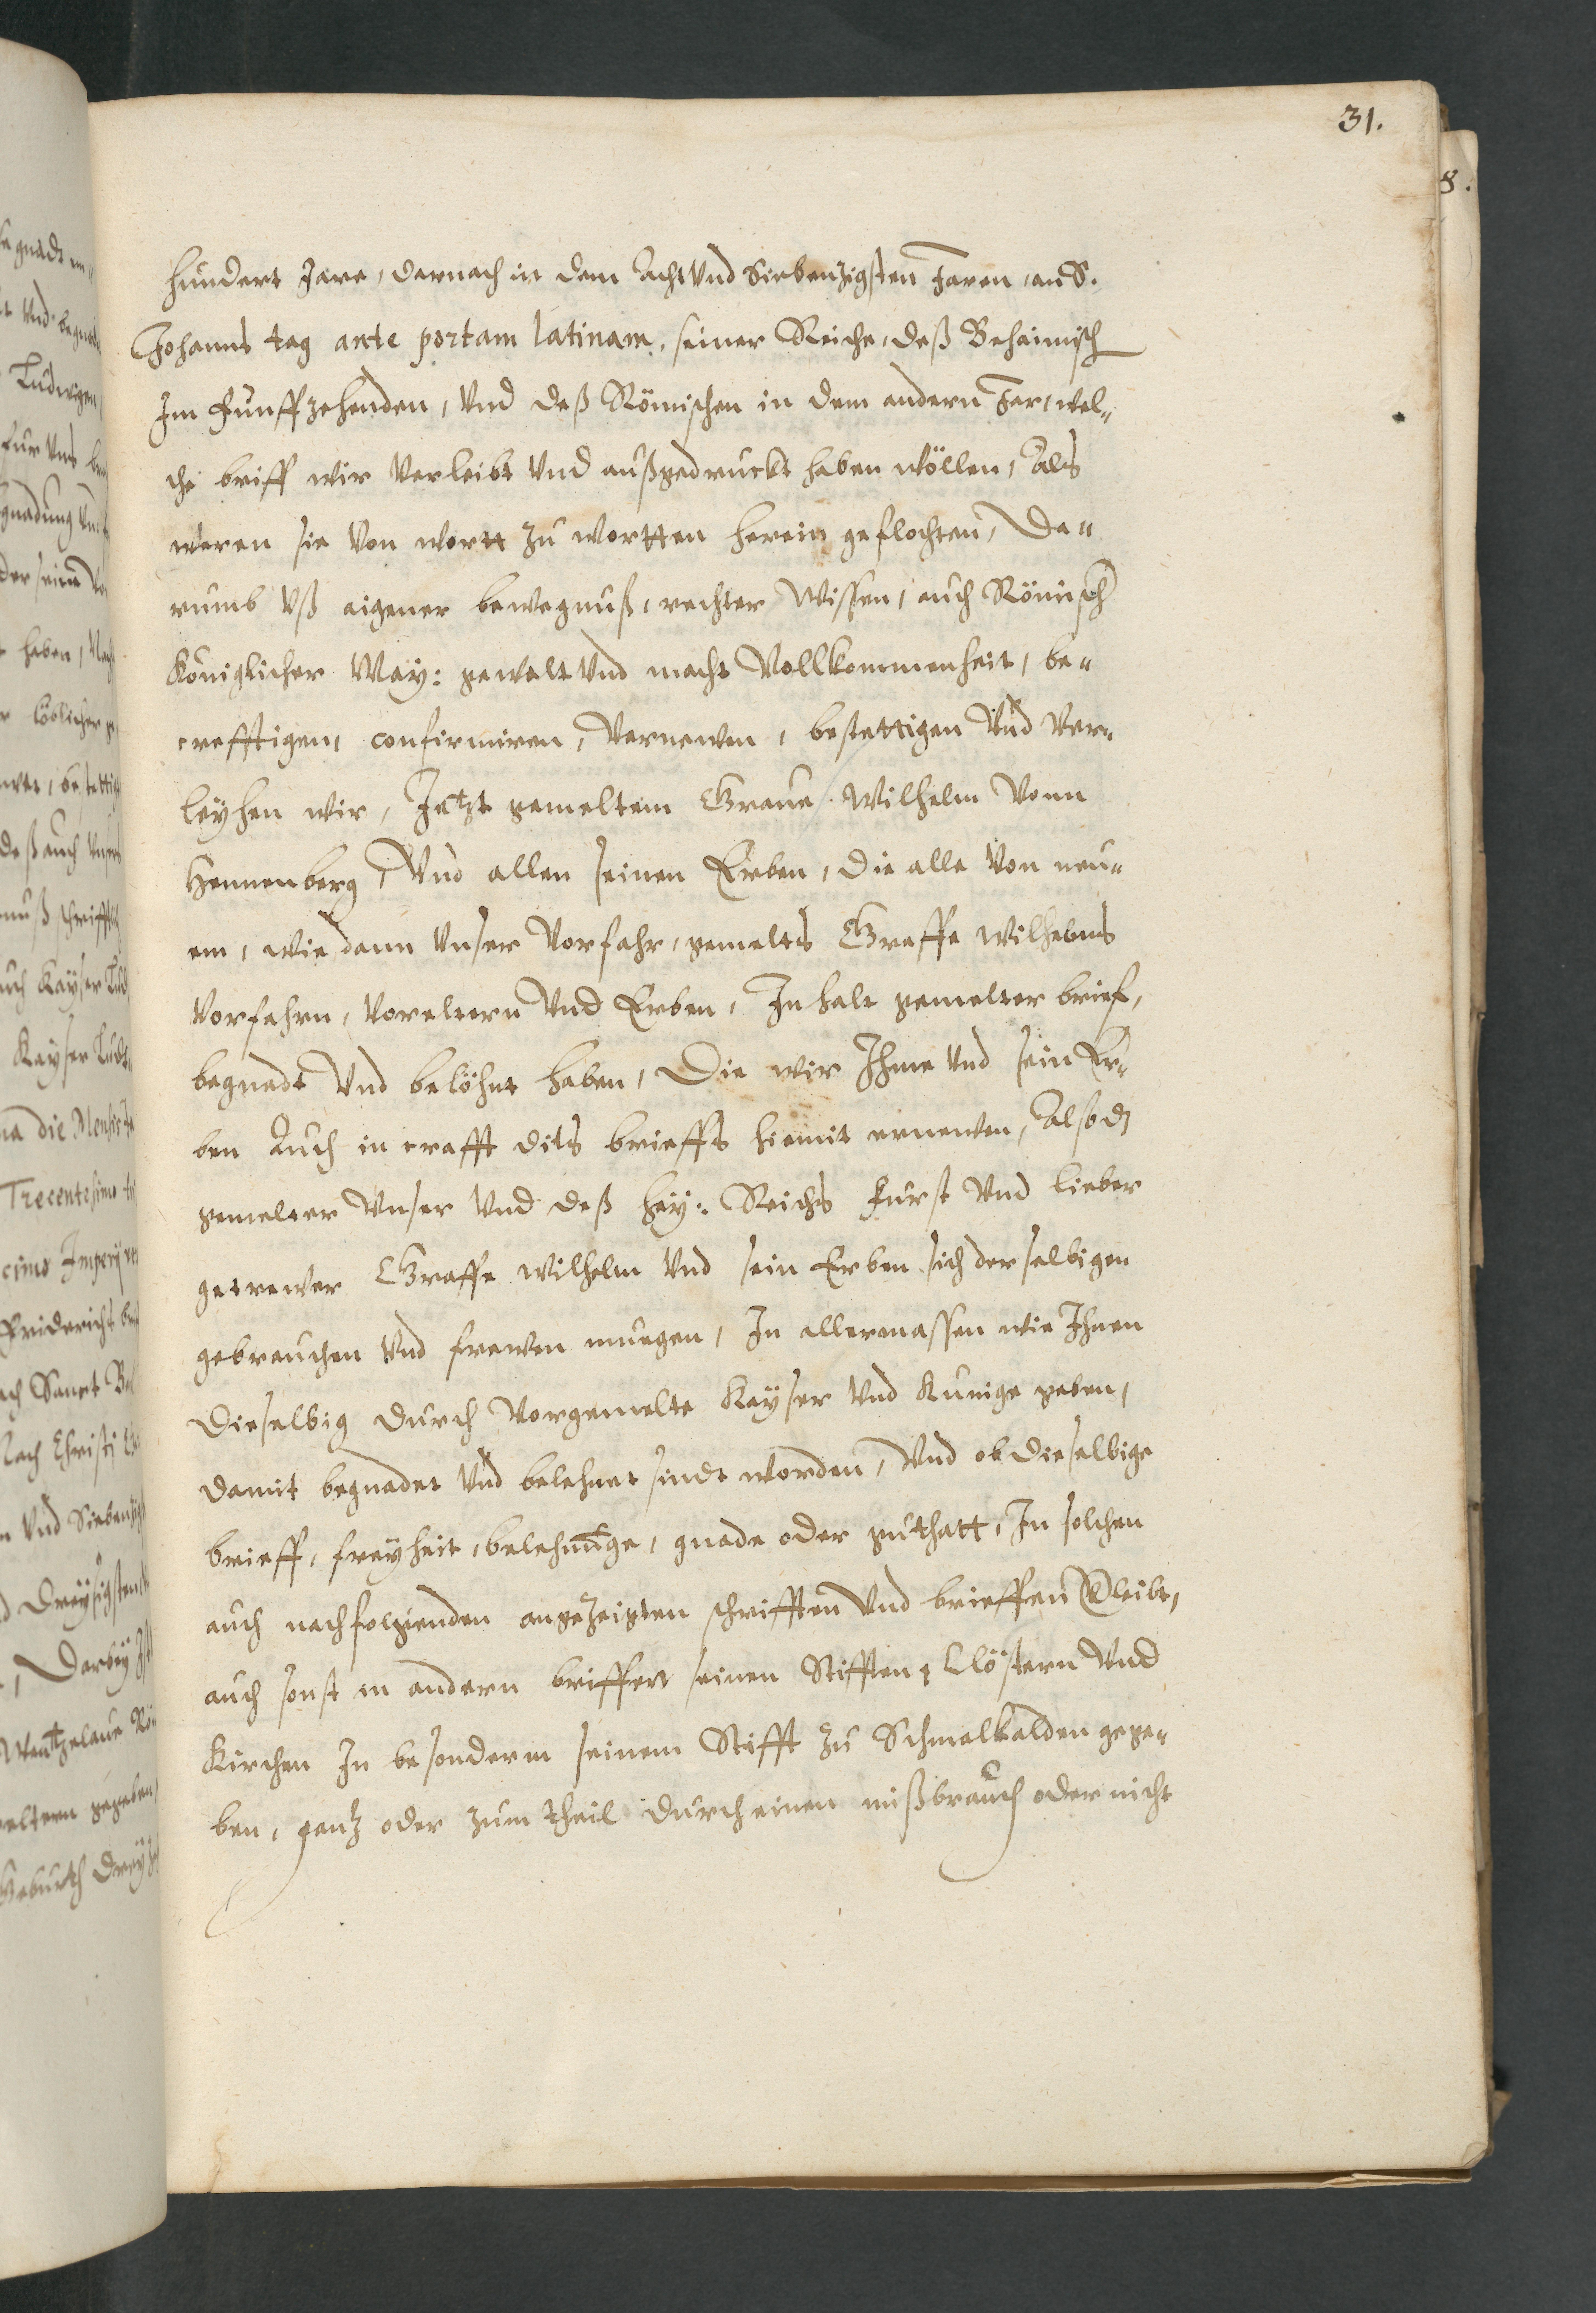 31.
8.
hundert Jare, darnach in dem Acht Vnd Siebenzigsten Jaren, an S.
Johanns tag ante portam latinam, seiner Reiche, deß Behaimisch
Im Funffzehenden, Vnd deß Römischen in dem andern Jar, wel„
che briff wir Verleibt Vnd außgedruckt haben wöllen, Als
weren sie Von wortt zu wortten herein geflochten, Da„
rumb Vß aigener bewegnuß, rechter Wissen, auch Römisch
Königlicher May: gewalt Vnd macht Vollkommenheit, be„
crefftigen, confirmiren, Vernewen, bestettigen Vnd Ver„
leyhen wir, Jetzt gemeltem Graue Wilhelm Vonn
Hennenberg, Vnd allen seinen Erben, die alle Von neu„
em, wie dann Vnser Vorfahr, gemelts Graffe Wilhelms
Vorfahrn, Voreltern Vnd Erben, Inhalt gemelter brief,
begnadt Vnd belöhnt haben, Die wir Ihme Vnd sein Er„
ben Auch in crafft dits brieffs hiemit ernewen, Also dz
gemelter Vnser Vnd deß hey: Reichs Furst Vnd lieber
getrewer Graffe Wilhelm Vnd sein Erben sich der selbigen
gebrauchen Vnd frewen muegen, In allermassen wie Ihnen
Dieselbig durch Vorgemelte Kayser Vnd Kunige geben,
damit begnadet Vnd belehnet sindt worden, Vnd ob dieselbige
brieff, freyheit, belehnunge, gnade oder guthatt, In solchen
auch nachfolgenden angezeigten schrifften Vnd brieffen Vleibt,
auch sonst in andern briffen seinen Stifften, Clöstern Vnd
Kirchen In besonderm seinem Stifft zu Schmalkalden gege„
ben, ganz oder zum theil durch einen mißbrauch oder nicht